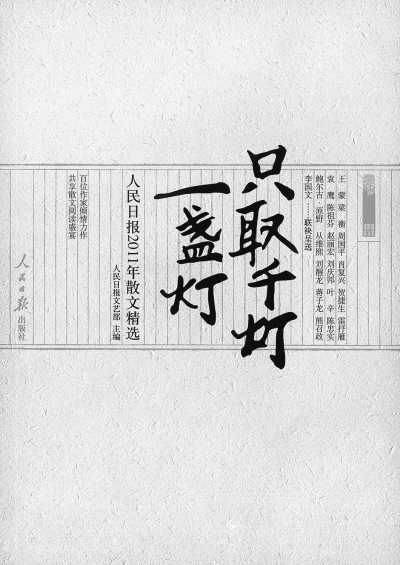 王 蒙 梁 衡 周国平 肖复兴 贺捷生 雷抒雁
袁 鹰 陈祖芬 赵丽宏 刘庆邦 叶 辛 陈忠实
鲍尔吉·原野 从维熙 刘醒龙 蒋子龙 熊召政
李国文……联袂呈送
只取千灯
一盏灯
人民日报2011年散文精选
人民日报文艺部 主编
百位作家倾情力作
共享散文阅读盛宴
人民日报出版社